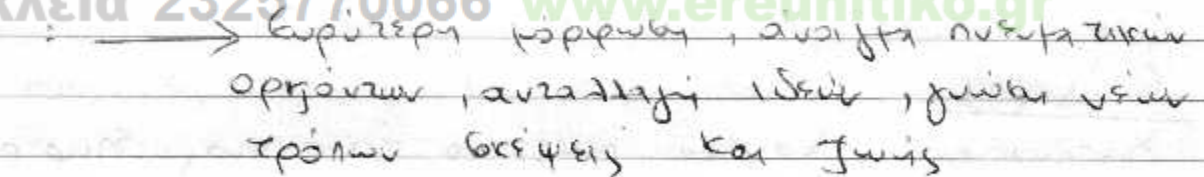 κλεία 2325770066 www.ereunitiko.gr
: → Ευρύτερη μόρφωση, άνοιγμα πνευματικών
οριζόντων, ανταλλαγή ιδεών, γνώση νέων
τρόπων σκέψεις και ζωής